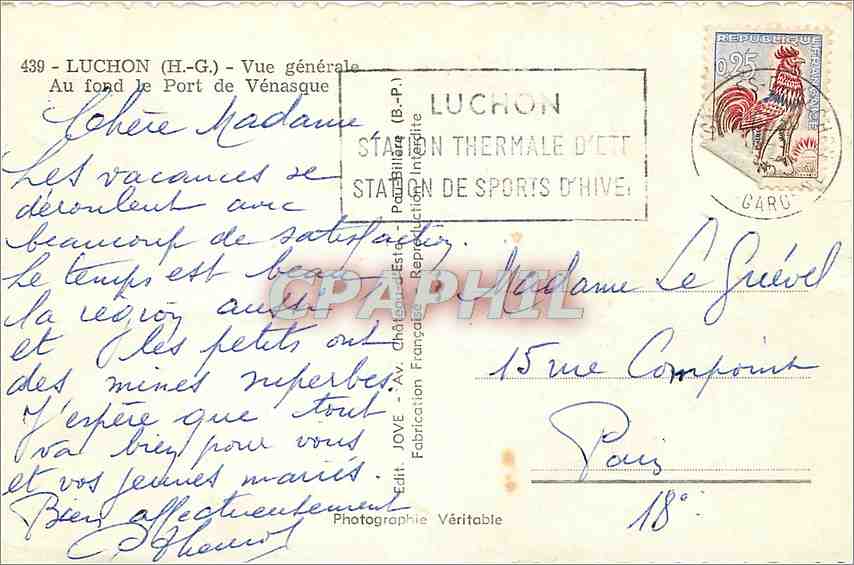 439 - LUCHON (H.-G.) - Vue générale
Au fond le Port de Vénasque
Chère Madame
Les vacances se
déroulent avec
beaucoup de satisfaction.
Le temps est beau
la région aussi
et les petits ont
des mines superbes.
J'espère que tout
va bien pour vous
et vos jeunes mariés.
Bien affectueusement
Edit. JOVE - Av. Château-d'Este - Pau-Billère (B.-P.)
Fabrication Française - Reproduction Interdite
Photographie Véritable
LUCHON
STATION THERMALE D'ETE
STATION DE SPORTS D'HIVER
REPUBLIQUE FRANÇAISE
0,25
GARONNE
CPAPHIL
Madame Le Guével
15 rue Compoint
Paris
18e